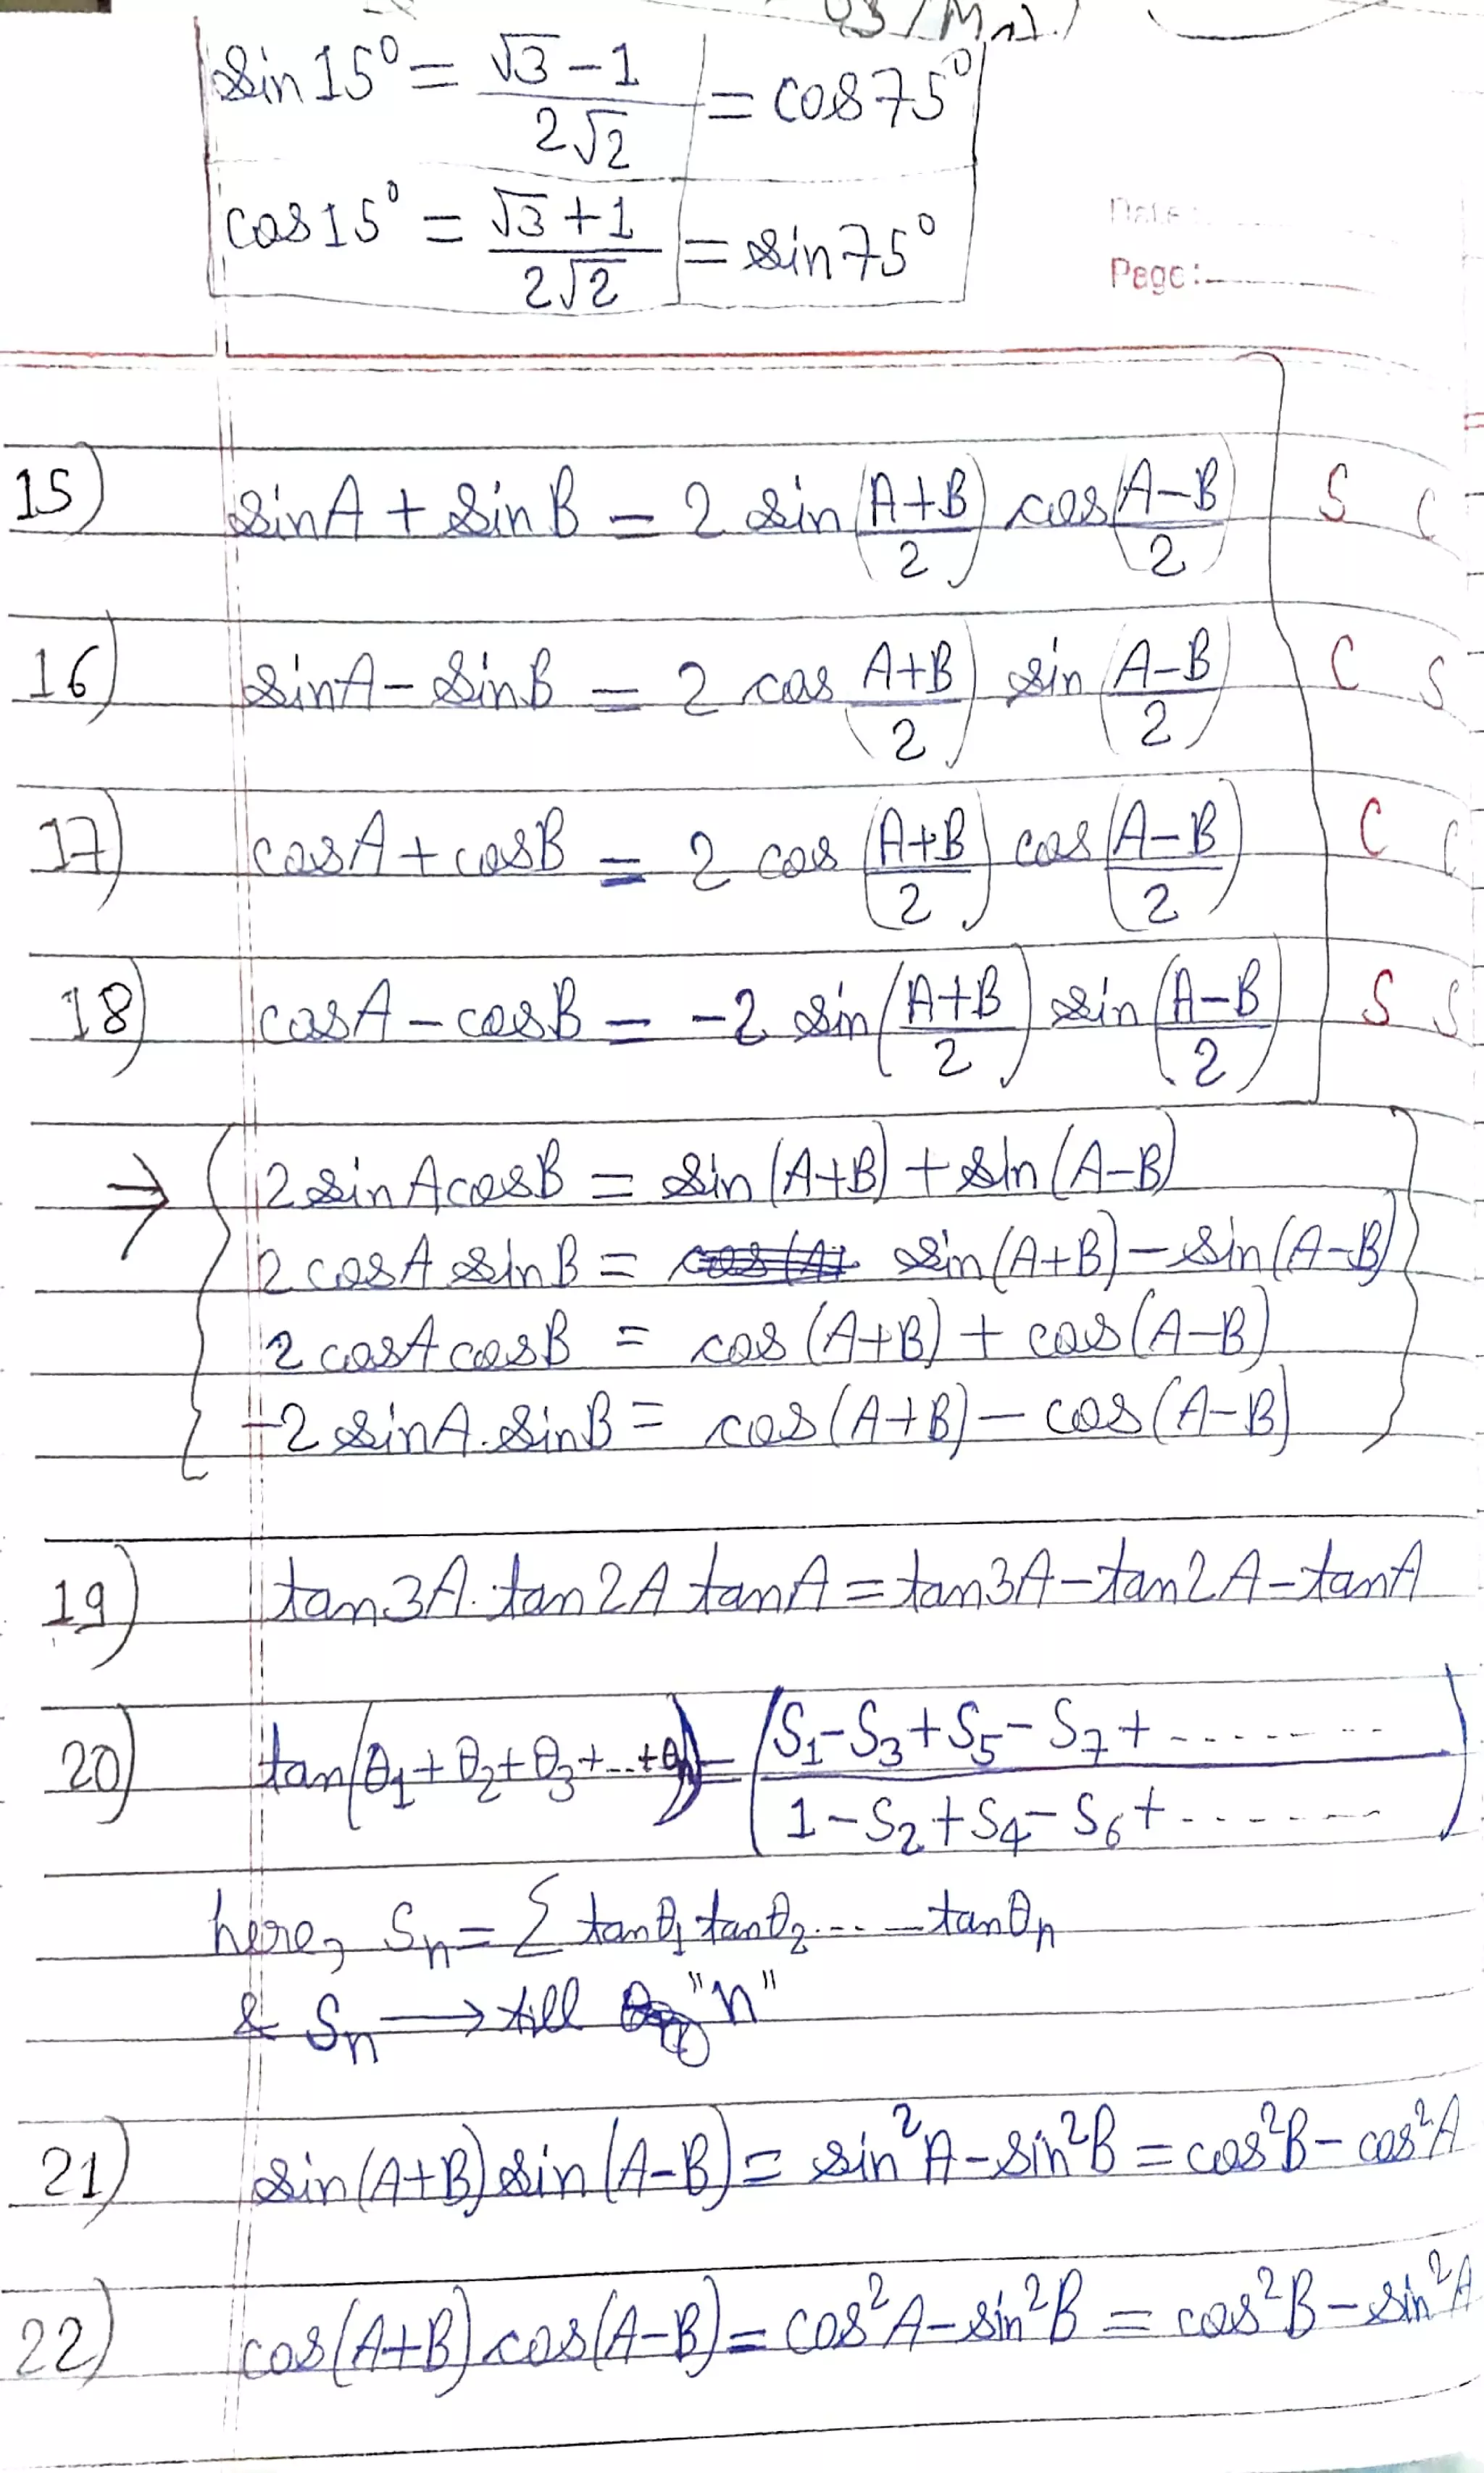 sin15° = (√3 - 1)/(2√2) = cos75°
cos15° = (√3 + 1)/(2√2) = sin75°
Date:
Page:
15) sinA + sinB = 2 sin((A+B)/2) cos((A-B)/2) S C
16) sinA - sinB = 2 cos((A+B)/2) sin((A-B)/2) C S
17) cosA + cosB = 2 cos((A+B)/2) cos((A-B)/2) C C
18) cosA - cosB = -2 sin((A+B)/2) sin((A-B)/2) S S
⇒ 2 sinA cosB = sin(A+B) + sin(A-B)
2 cosA sinB = sin(A+B) - sin(A-B)
2 cosA cosB = cos(A+B) + cos(A-B)
-2 sinA.sinB = cos(A+B) - cos(A-B)
19) tan3A.tan2A tanA = tan3A - tan2A - tanA
20) tan(θ₁+θ₂+θ₃+...+θn) = (S₁-S₃+S₅-S₇+.......)/(1-S₂+S₄-S₆+.......)
here, Sn = Σ tanθ₁ tanθ₂.....tanθn
& Sn → till "n"
21) sin(A+B) sin(A-B) = sin²A - sin²B = cos²B - cos²A
22) cos(A+B) cos(A-B) = cos²A - sin²B = cos²B - sin²A